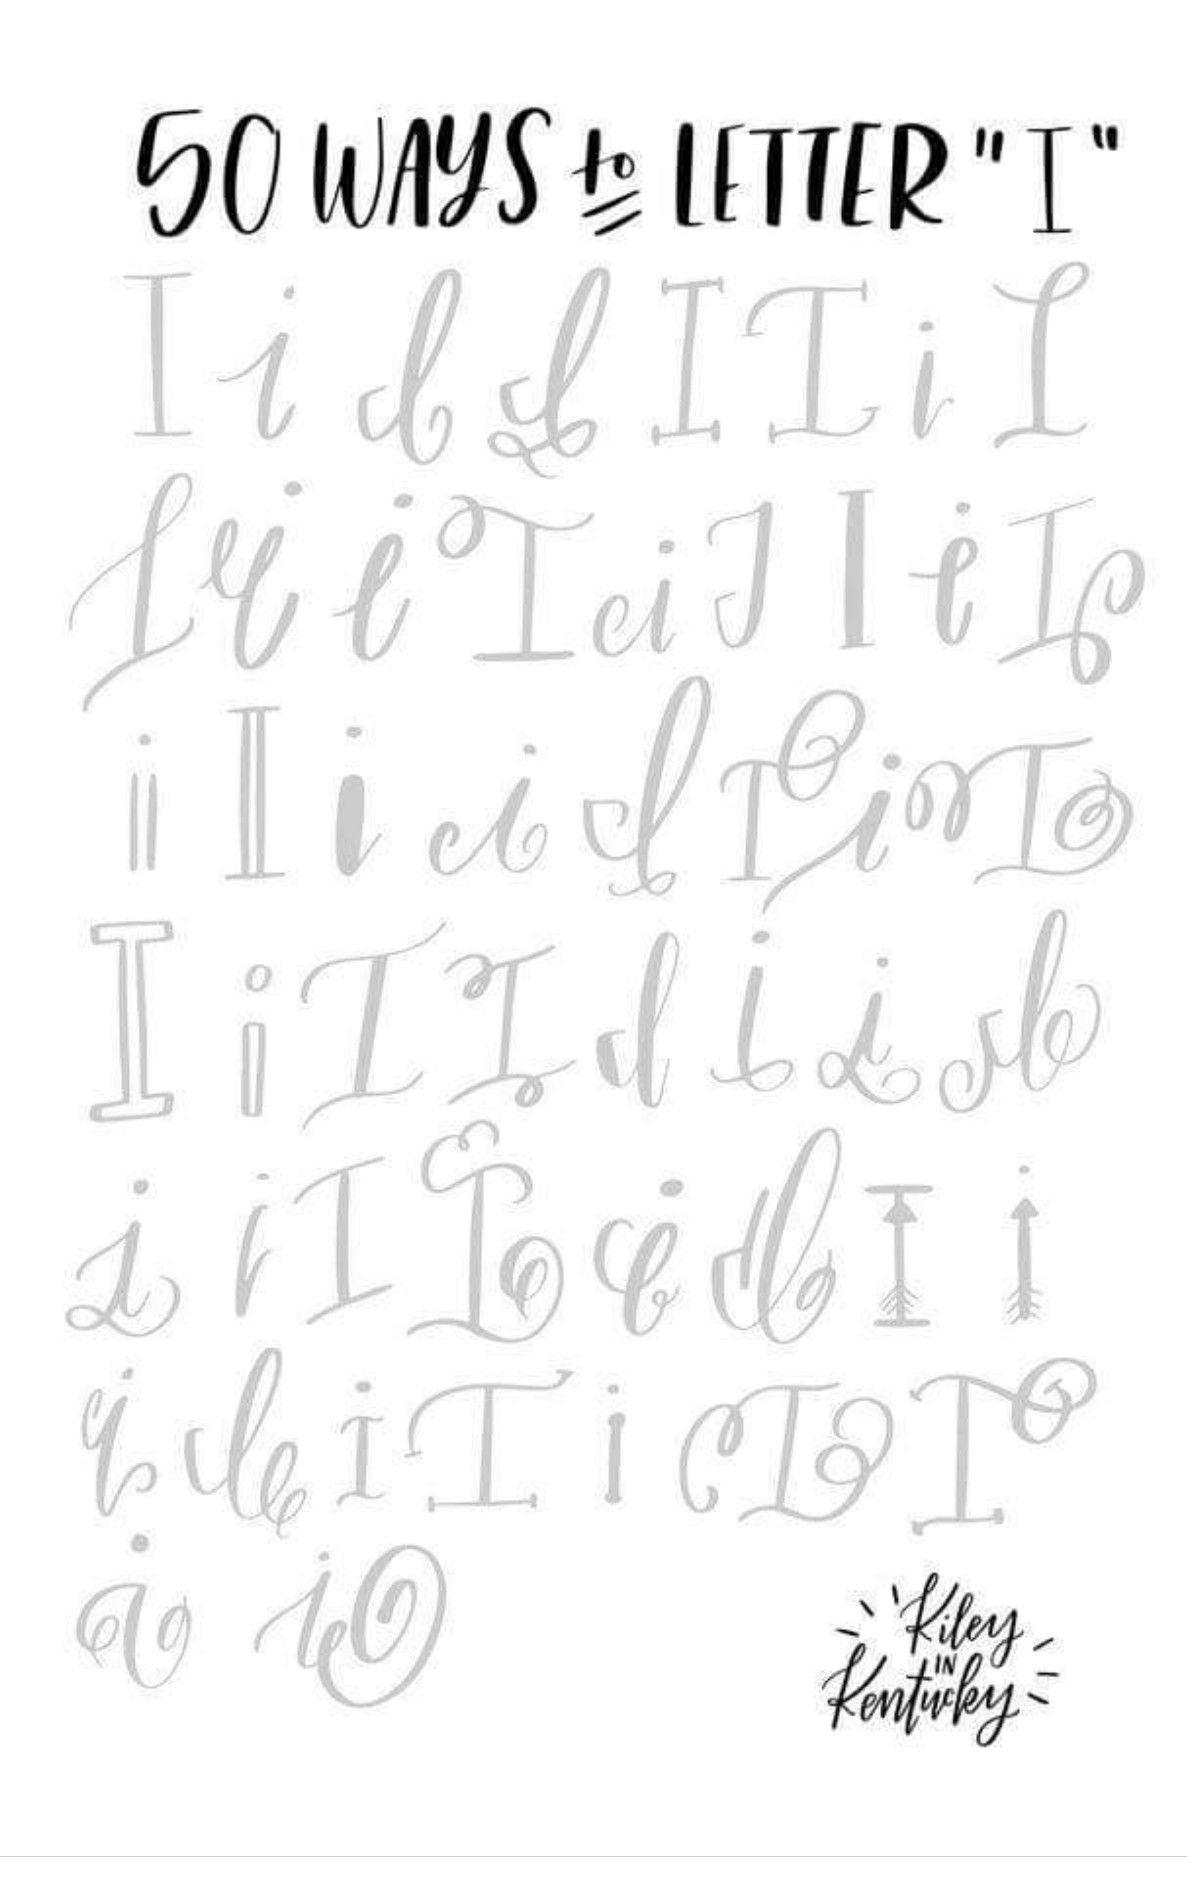 50 WAYS to LETTER "I"
I i I I I I i I
I i i I i I I i I
i I i i I I i I
I i I I I i i I
i i I I i I I i
i I i I i I I
i i
Kiley
IN
Kentucky